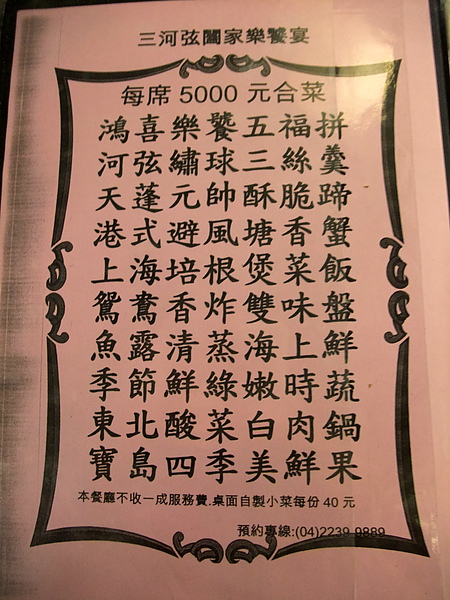 三河弦闔家樂饗宴
每席 5000 元合菜
鴻喜樂饗五福拼
河弦繡球三絲羹
天蓬元帥酥脆蹄
港式避風塘香蟹
上海培根煲菜飯
鴛鴦香炸雙味盤
魚露清蒸海上鮮
季節鮮綠嫩時蔬
東北酸菜白肉鍋
寶島四季美鮮果
本餐廳不收一成服務費.桌面自製小菜每份 40 元
預約專線:(04)2239-9889